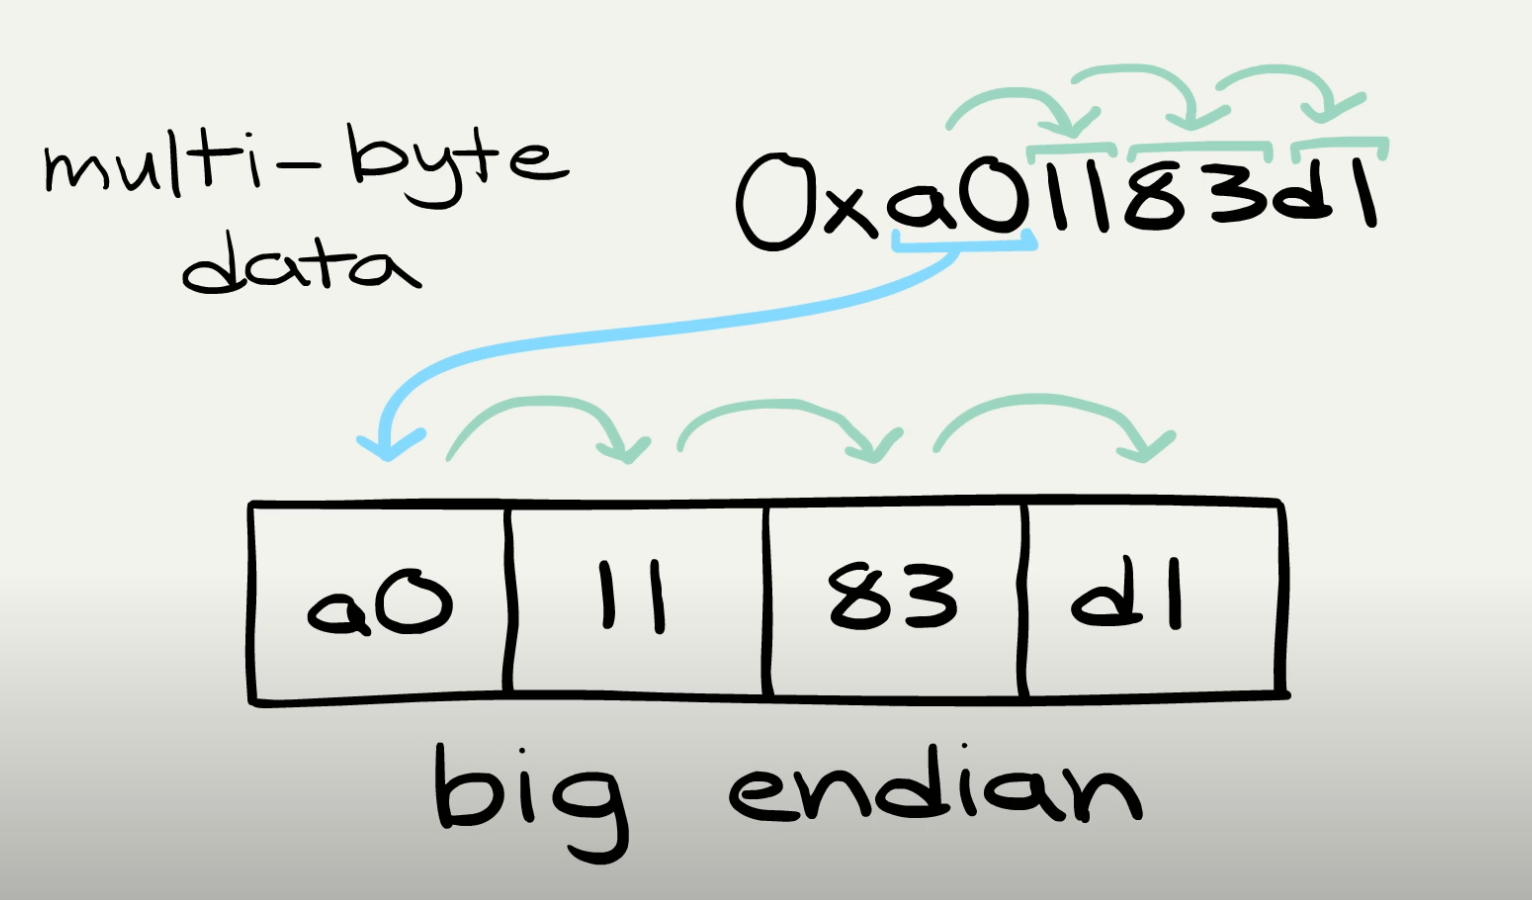 multi-byte
data
0xa01183d1
a0 11 83 d1
big endian